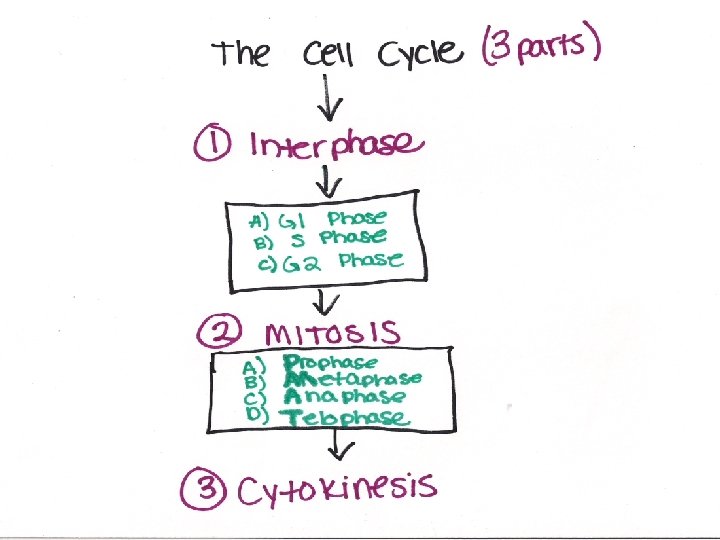 The Cell Cycle (3 parts)
① Interphase
A) G1 Phase
B) S Phase
C) G2 Phase
② MITOSIS
A) Prophase
B) Metaphase
C) Anaphase
D) Telophase
③ Cytokinesis